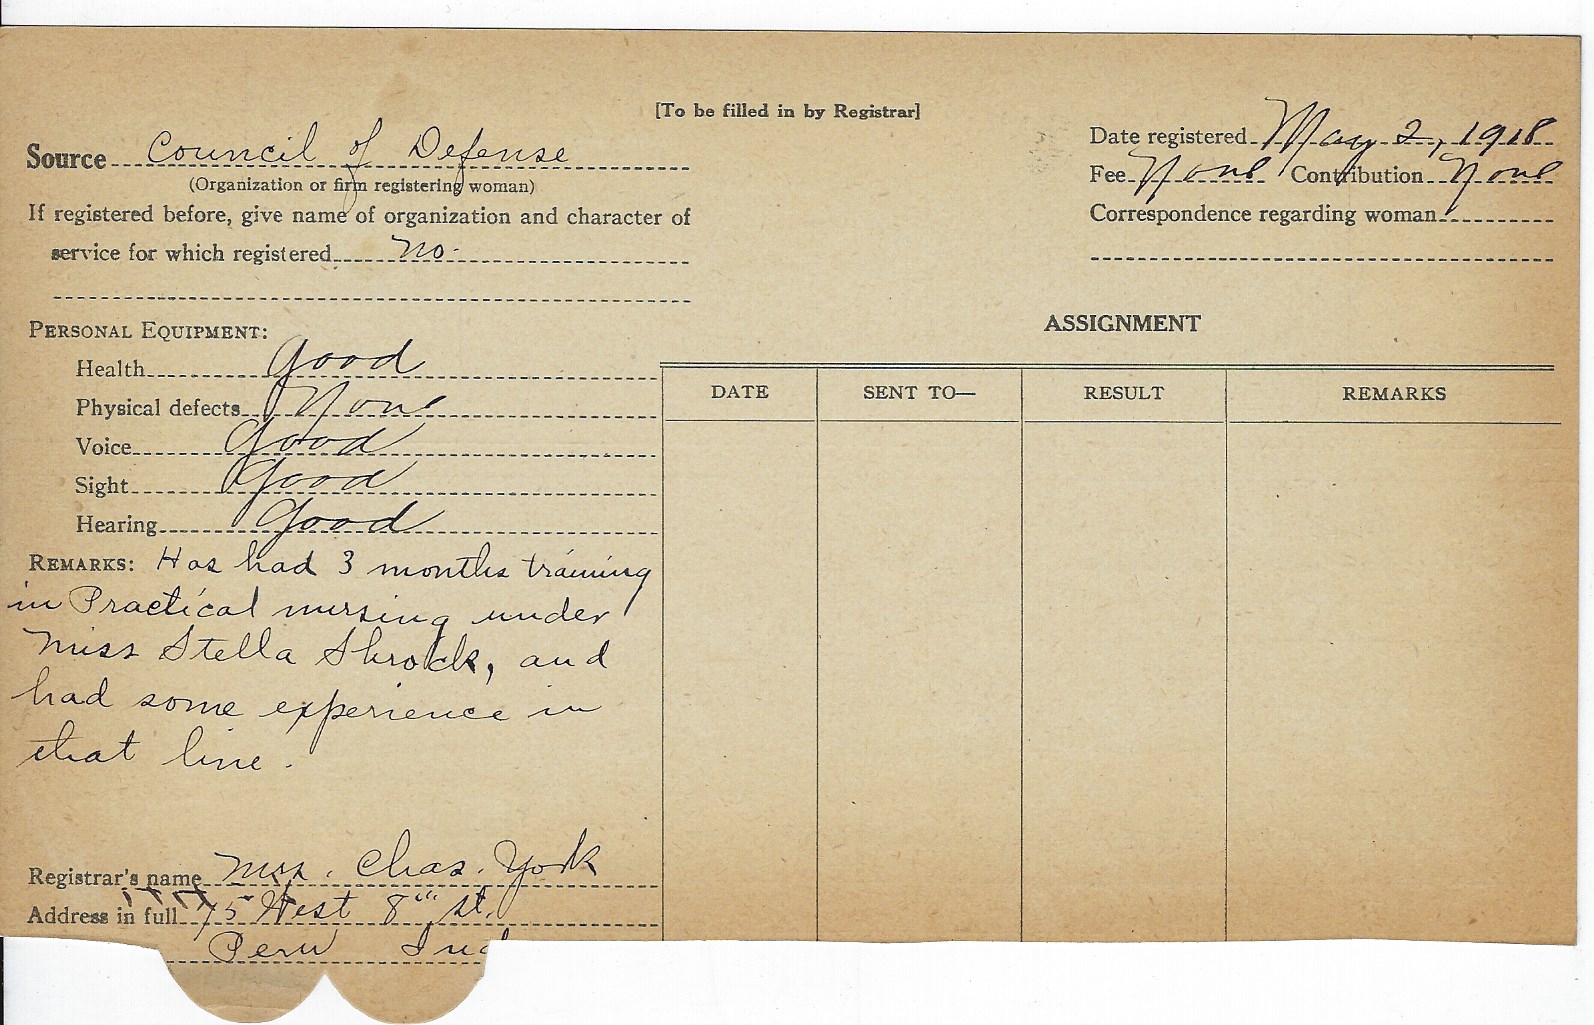 [To be filled in by Registrar]
Source Council of Defense
(Organization or firm registering woman)
If registered before, give name of organization and character of
service for which registered no.
Date registered May 2, 1918
Fee None Contribution None
Correspondence regarding woman
PERSONAL EQUIPMENT:
Health Good
Physical defects None
Voice Good
Sight Good
Hearing Good
REMARKS: Has had 3 months training
in Practical nursing under
Miss Stella Shrock, and
had some experience in
that line.
Registrar's name Mrs. Chas. York
Address in full 75 West 8th St.
Peru Ind
ASSIGNMENT
DATE SENT TO— RESULT REMARKS